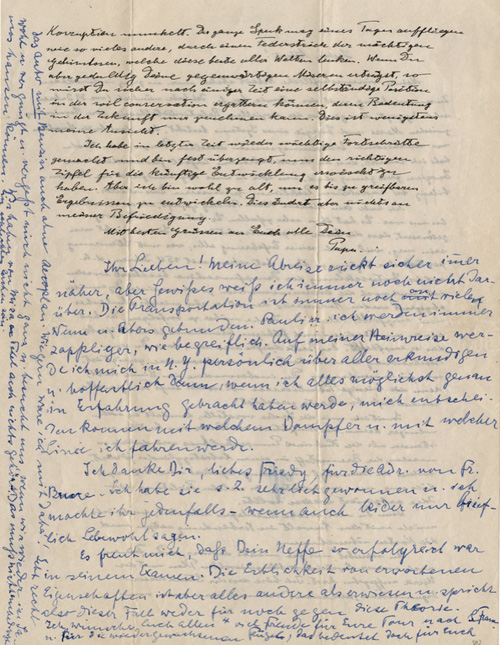 Korruption munkelt. Der ganze Spuk mag eines Tages auffliegen
wie so vieles andere, durch einen Federstrich der mächtigen
Gehirnlosen, welche diese beste aller Welten lenken. Wenn Du
aber geduldig Deine gegenwärtigen Miseren erträgst, so
wirst Du sicher nach einiger Zeit eine selbständige Position
in der soil conservation ergattern können, deren Bedeutung
in der Zukunft nur zunehmen kann. Dies ist wenigstens
meine Ansicht.
Ich habe in letzter Zeit wieder wichtige Fortschritte
gemacht und bin fest überzeugt, nun den richtigen
Zipfel für die künftige Entwicklung erwischt zu
haben. Aber ich bin wohl zu alt, um es bis zu greifbaren
Ergebnissen zu entwickeln. Dies ändert aber nichts an
meiner Befriedigung.
Mit besten Grüssen an Euch alle Dein
Papa.
Ihr Lieben! Meine Abreise rückt sicher immer
näher, aber Gewisses weiß ich immer noch nicht dar-
über. Die Transportation ist immer noch mit vielen
Wenn u. Abers gebunden. Paul u. ich werden immer
zappliger, wie begreiflich. Auf meiner Heimreise wer-
de ich mich in N.Y. persönlich über alles erkundigen
u. hoffentlich dann, wenn ich alles möglichst genau
in Erfahrung gebracht haben werde, mich entschei-
den können mit welchem Dampfer u. mit welcher
Linie ich fahren werde.
Ich danke Dir, liebes Friedy, für die Adr. von Fr.
Ich habe sie s. Z. sehr lieb gewonnen u. ich
möchte ihr jedenfalls – wenn auch leider nur brief-
lich Lebewohl sagen.
Es freut mich, daß Dein Neffe so erfolgreich war
in seinem Examen. Die Erblichkeit von erworbenen
Eigenschaften ist aber alles andere als erwiesen u. spricht
also dieser Fall weder für noch gegen diese Theorie.
Ich wünsche Euch allen viel Freude für Eure Tour nach S. Fran.
u. für die wiedergewachsenen Flügel, das bedeutet doch für Euch
das Auto mit Benzin auch ohne Aeroplan. Wie gern wäre ich mit dabei! Lebt recht
wohl u. vergnügt u. vergeßt mich nicht ganz u. besucht uns wenn wir wieder in